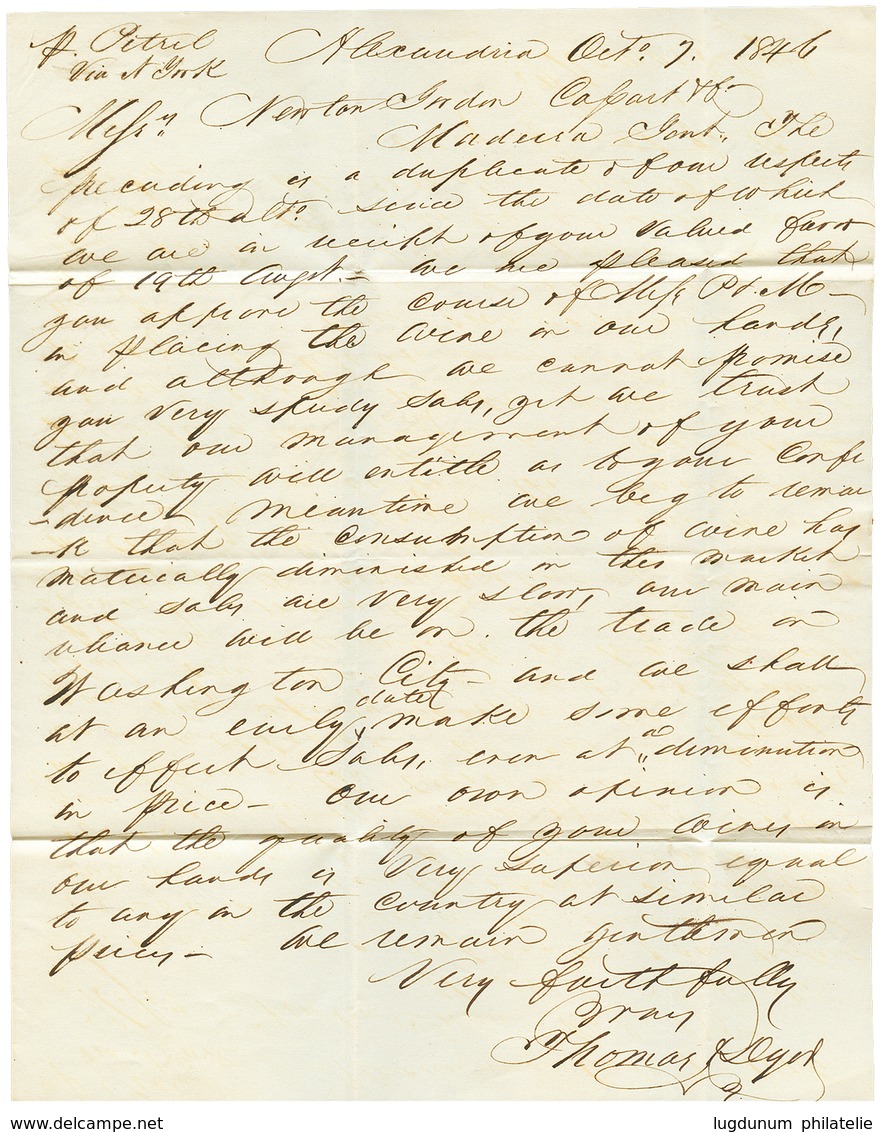 p. Petrel Alexandria Octo. 7. 1846
Via N York
Messrs Newton Gordon Cossart & Co
Madeira Gent., The
preceeding is a duplicate of our respects
of 28th ulto. since the date of which
we are in receipt of your valued favor
of 19th Augst. - We are pleased that
you approve the course of Messrs P & M -
in placing the wine in our hands,
and although we cannot promise
you very speedy sales, yet we trust
that our management of your
property will entitle us to your confi
-dence - Meantime we beg to remar
-k that the consumption of wine has
materially diminished in this market
and sales are very slow, our main
reliance will be on the trade in
Washington City - and we shall
at an early date make some efforts
to effect sales, even at a diminution
in price - Our own opinion is
that the quality of your wines in
our hands is very superior equal
to any in the country at similar
prices - We remain gentlemen
Very faithfully
Yours
Thomas & Dyer
www.delcampe.net lugdunum philatelie